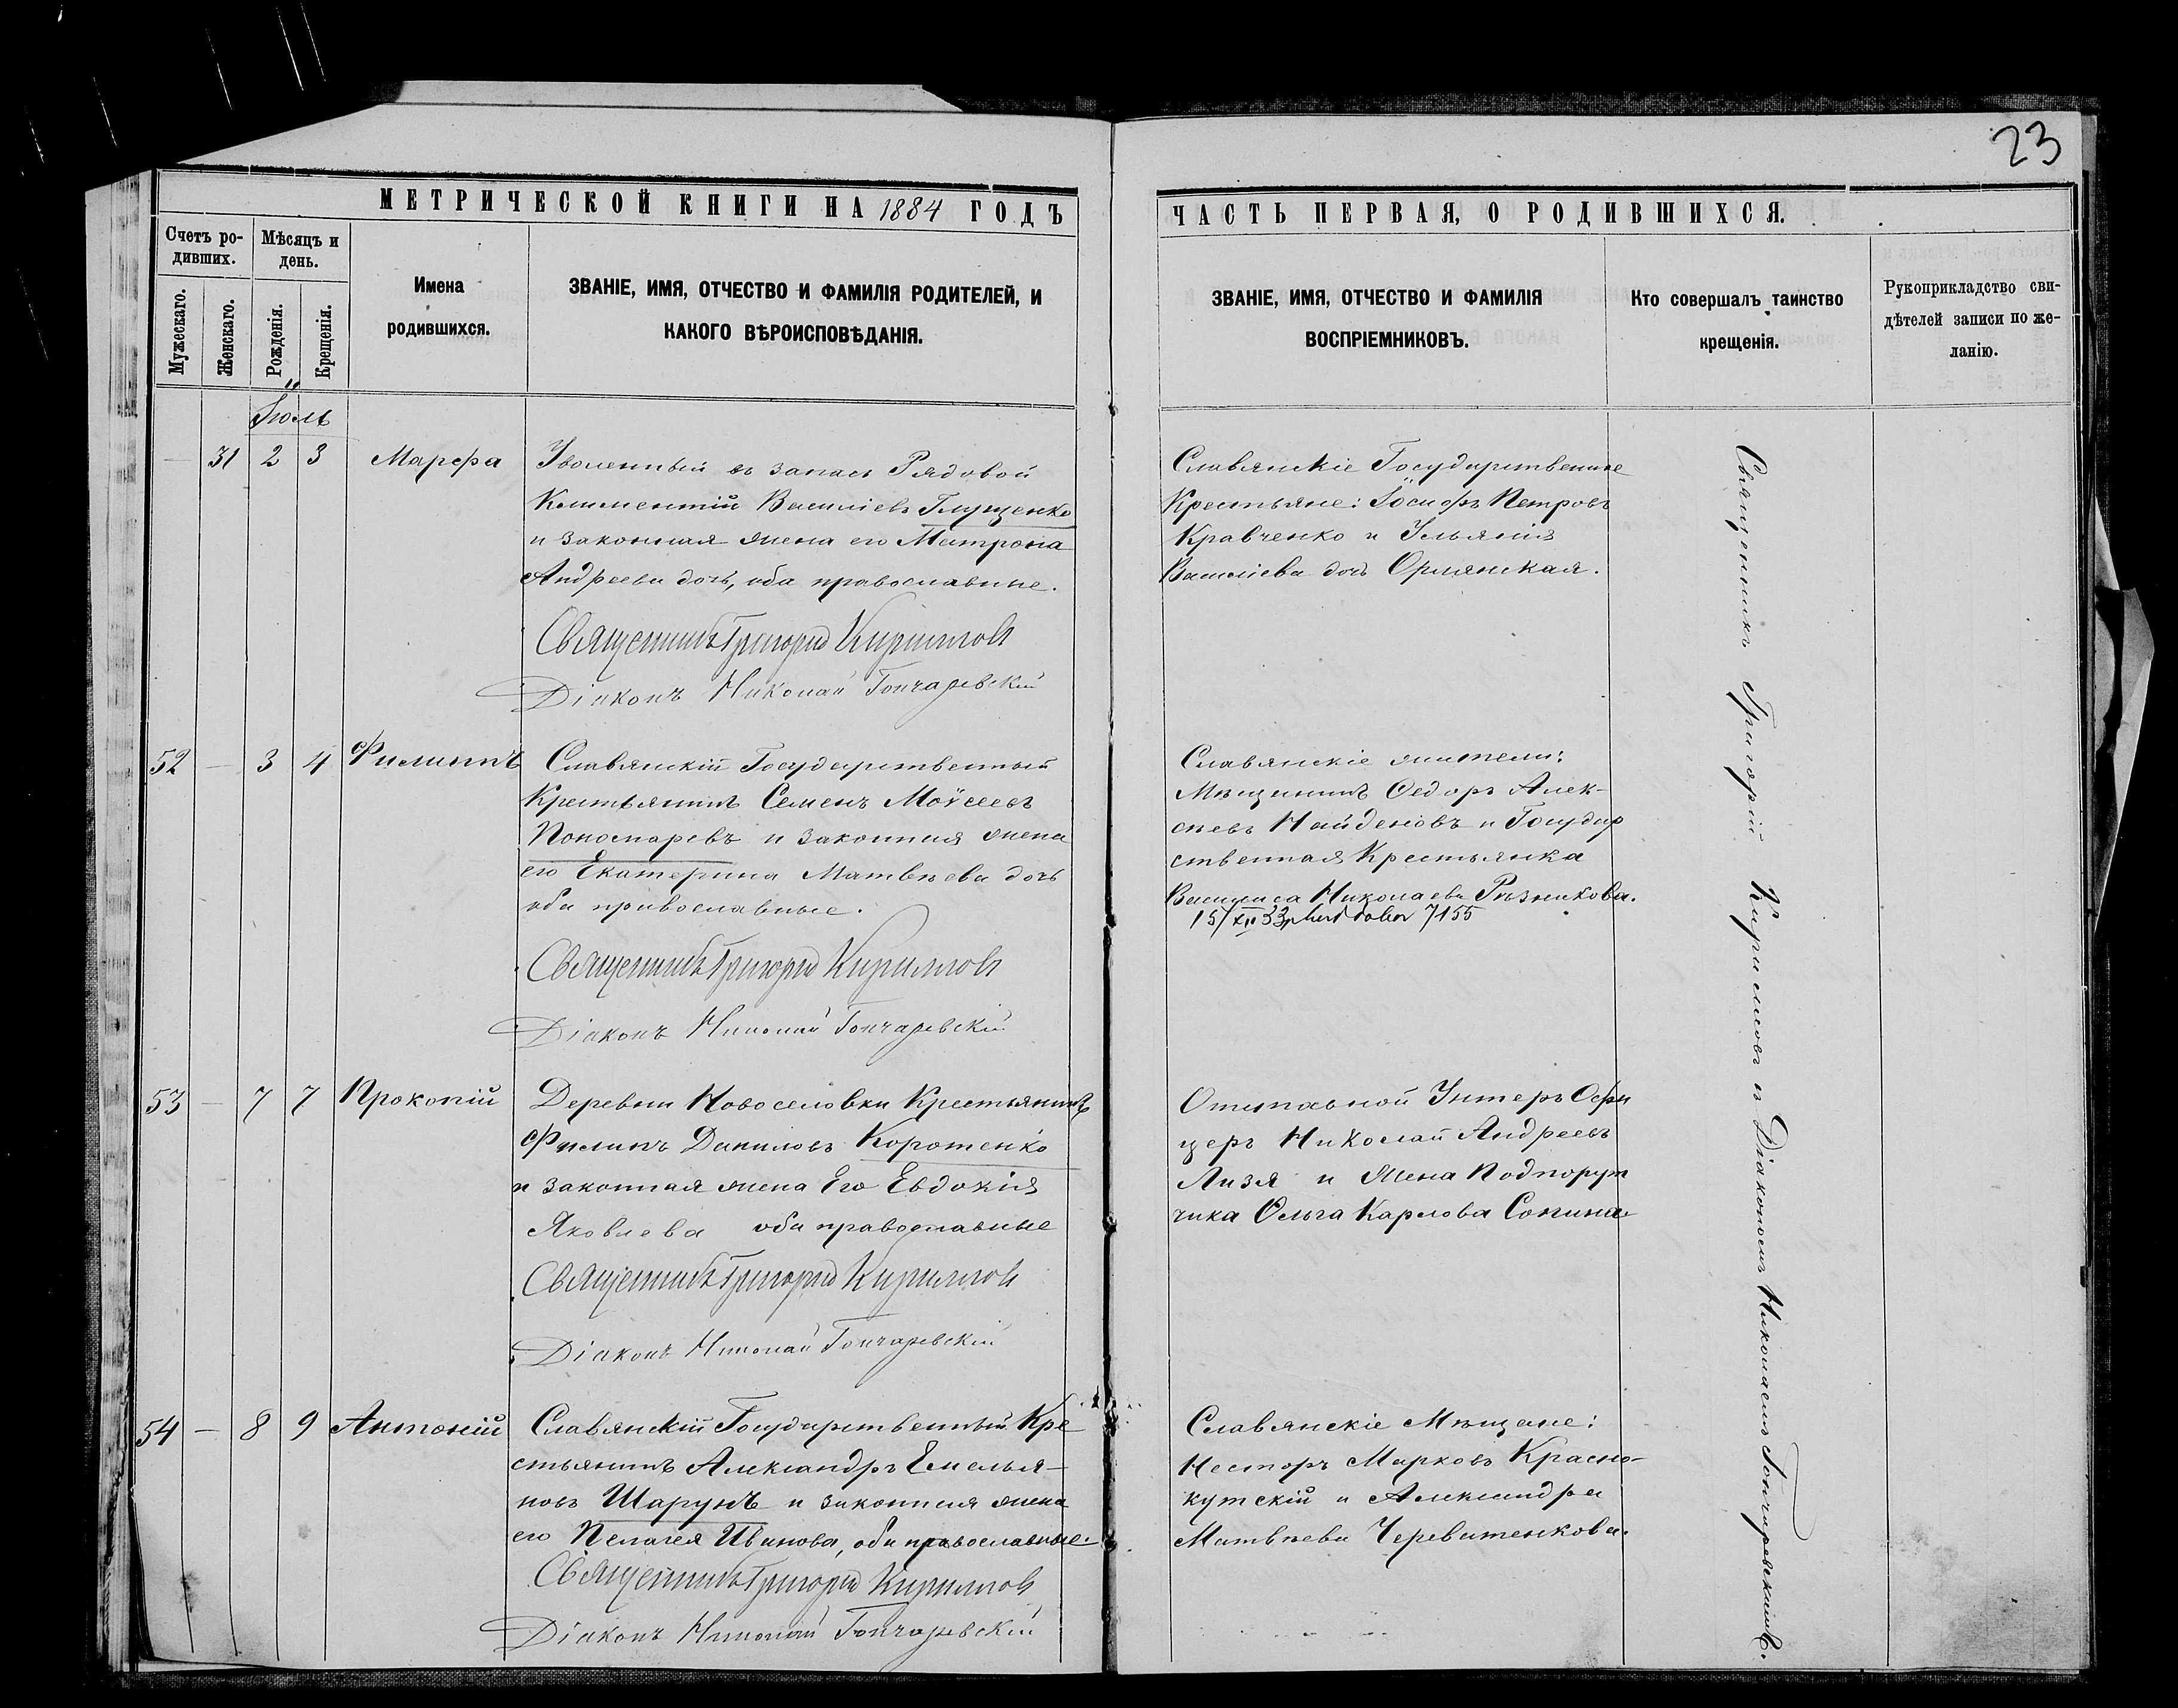 23
МЕТРИЧЕСКОЙ КНИГИ НА 1884 ГОДЪ
Счетъ ро-
дивших.
Мужескаго.
Женскаго.
Мѣсяцъ и
день.
Рожденія.
Крещенія.
Имена
родившихся.
ЗВАНІЕ, ИМЯ, ОТЧЕСТВО И ФАМИЛІЯ РОДИТЕЛЕЙ, И
КАКОГО ВѢРОИСПОВѢДАНІЯ.
ЧАСТЬ ПЕРВАЯ, О РОДИВШИХСЯ.
ЗВАНІЕ, ИМЯ, ОТЧЕСТВО И ФАМИЛІЯ
ВОСПРІЕМНИКОВЪ.
Кто совершалъ таинство
крещенія.
Рукоприкладство сви-
дѣтелей записи по же-
ланію.
Іюль
— 31 2 3 Марѳа
Уволенный въ запасъ Рядовой
Климентій Василіевъ Глущенко
и законная жена его Матрона
Андреева дочь, оба православные.
Священникъ Григорій Кирилловъ
Діаконъ Николай Гончаревскій
Славянскіе Государственные
Крестьяне: Іосифъ Петровъ
Кравченко и Ульянія
Василіева дочь Орлянская.
52 — 3 4 Филиппъ
Славянскій Государственный
Крестьянинъ Семенъ Моѵсеевъ
Пономаревъ и законная жена
его Екатерина Матвѣева дочь
оба православные.
Священникъ Григорій Кирилловъ
Діаконъ Николай Гончаревскій
Славянскіе жители:
Мѣщанинъ Ѳедоръ Алек-
сѣевъ Найденовъ и Государ
ственная Крестьянка
Василиса Николаева Рѣзникова.
15/XII 33 7155
53 — 7 7 Прокопій
Деревни Новоселовки Крестьянинъ
Филипъ Даниловъ Коротенко
и законная жена Его Евдокія
Яковлева оба православные
Священникъ Григорій Кирилловъ
Діаконъ Николай Гончаревскій
Отставной Унтеръ Офи
церъ Николай Андреевъ
Лизя и Жена Подпорут
чика Ольга Карлова Сопина.
54 — 8 9 Антоній
Славянскій Государственный Кре
стьянинъ Александръ Емелья-
новъ Шарунъ и законная жена
его Пелагея Иванова, оба православные.
Священникъ Григорій Кирилловъ
Діаконъ Николай Гончаревскій
Славянскіе Мѣщане:
Несторъ Марковъ Красно-
кутскій и Александра
Матвѣева Череватенкова.
Священникъ Григорій Кирилловъ съ Діакономъ Николаемъ Гончаревскимъ.